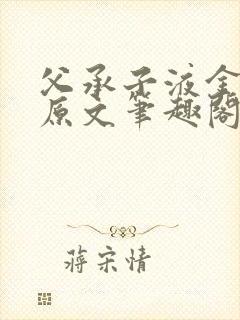 父承子液全
原文笔趣阁
蒋宋情